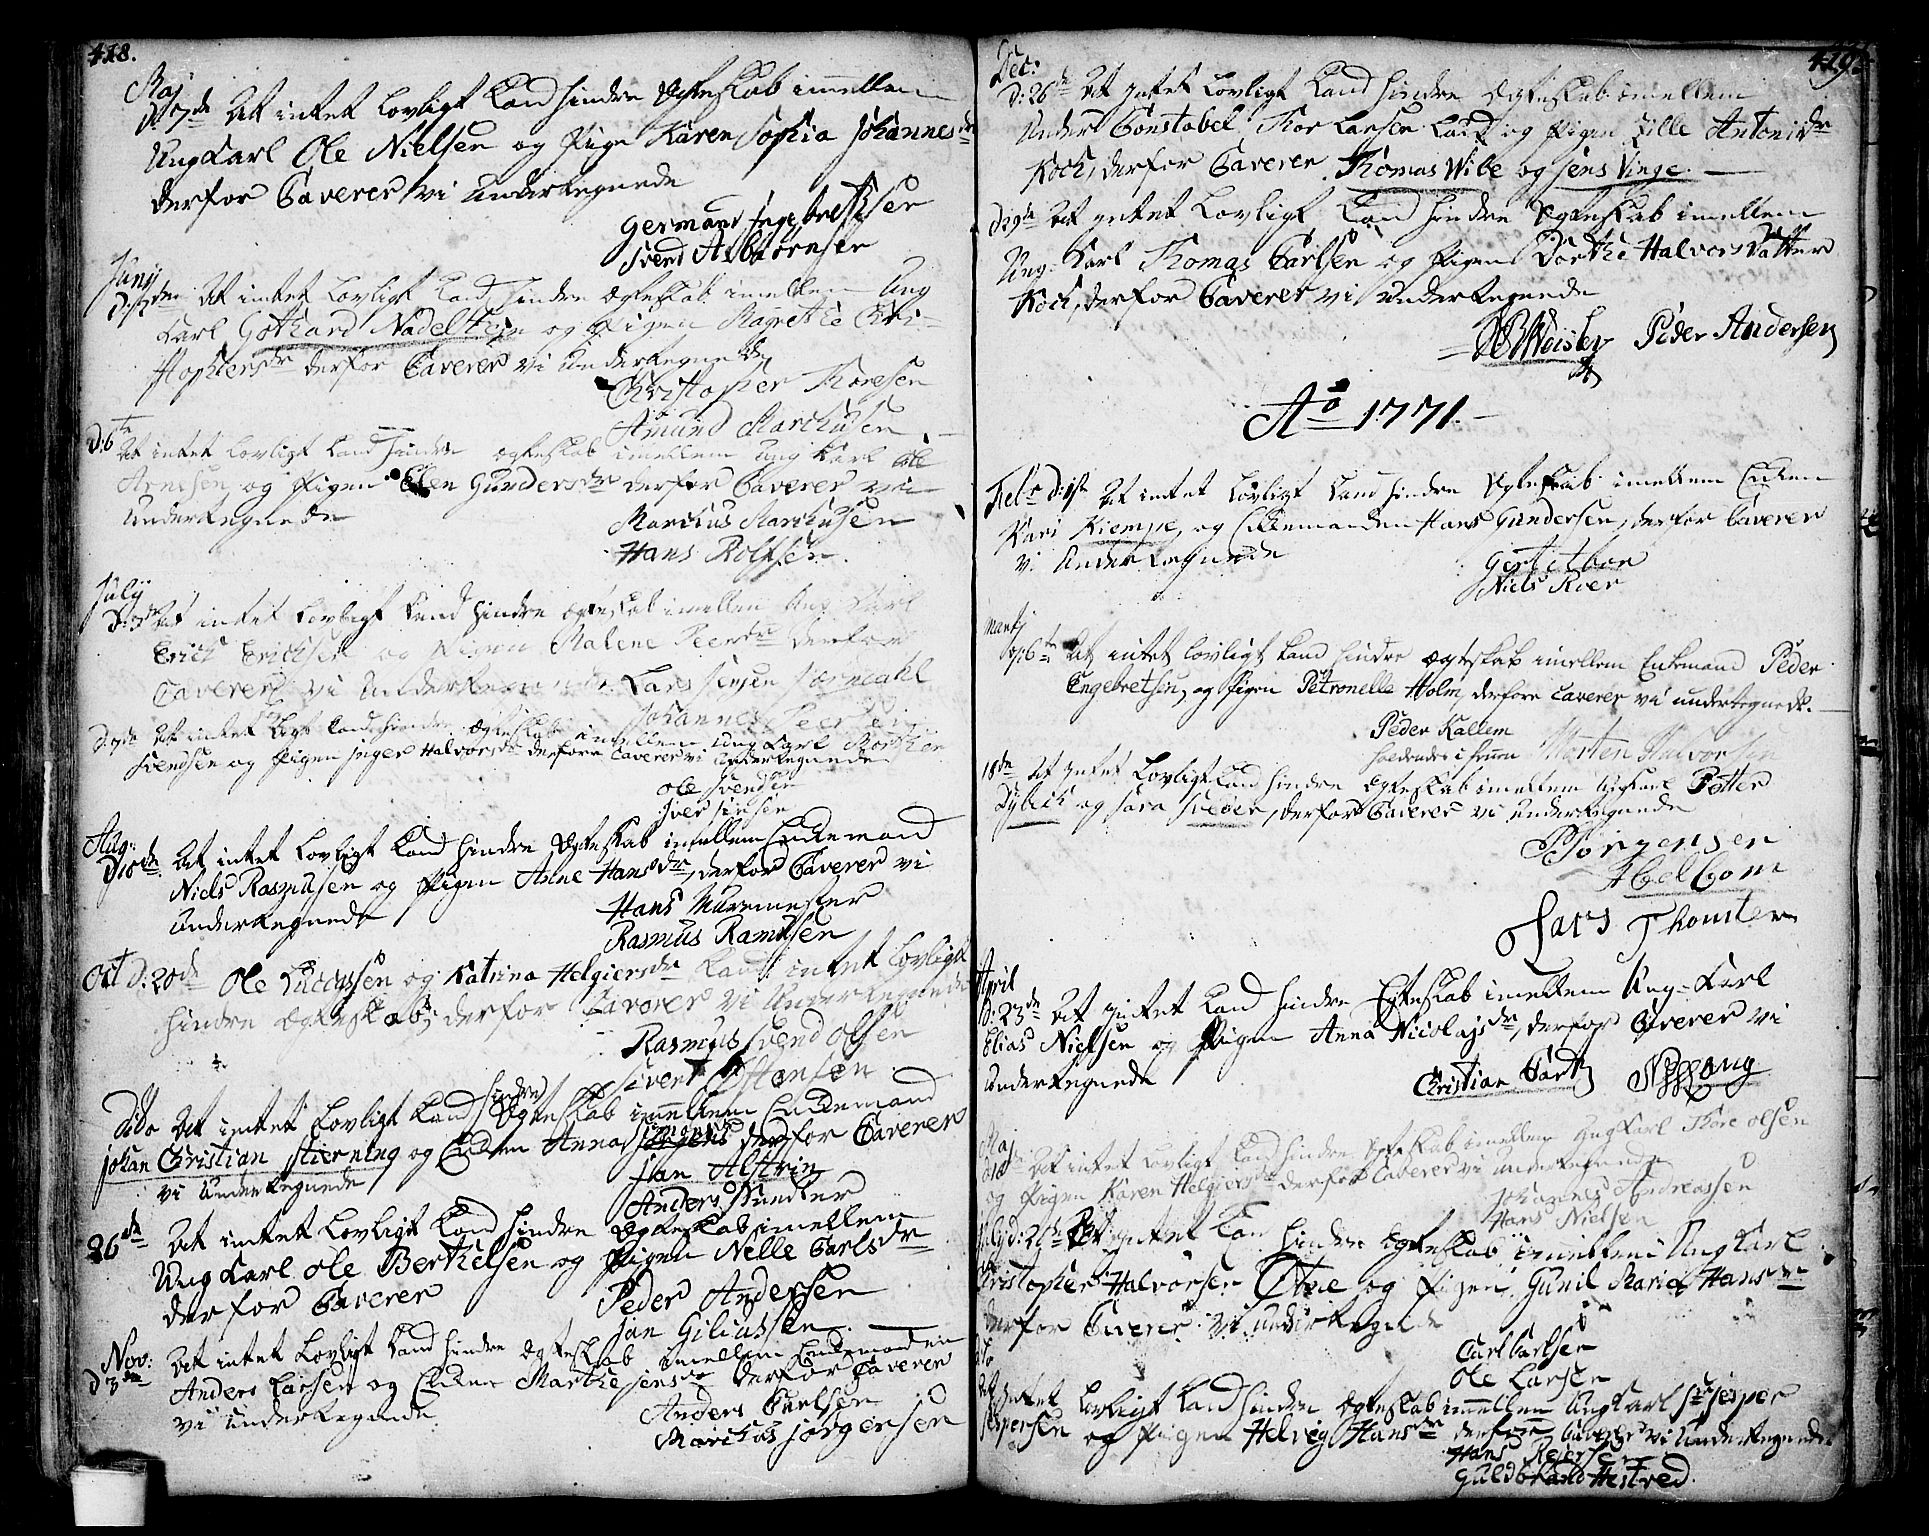 418.
Maj
D: 7de At intet Lovligt Kand hindre Ægteskab imellem
Ung Karl Ole Nielsen og Pige Karen Sophia Johannesdr
derfor Caverer vi Undertegnede
Germand Ingebrethsen
Svend Asbiørnsen
Juny
At intet Lovligt Kand hindre Ægteskab imellem Ung
Karl Gothard Nadelstein og Pigen Magrethe Chri-
stophersdr derfor Caverer vi Undertegnede
Christopher Thoresen
Amund Marchusen
D: 6te At intet Lovligt Kand hindre Ægteskab imellem Ung Karl Ole
Arnesen og Pigen Elen Gundersdr derfor Caverer vi
Undertegnede
Marchus Marchusen
Hans Rolfsen
July
At intet Lovligt Kand hindre Ægteskab imellem Ung Karl
Erich Erichsen og Pigen Malene Peersdr derfor
Caverer vi Undertegnede Lars Jensen
Johannes Peersen
D: 7de At intet Lovt Kand hindre Ægteskab imellem Ung Karl
Svendsen og Pigen Inger Halvorsdr derfore Caverer vi Undertegnede
Ole Svendsen
Iver Jensen
Aug:
D 18de At intet Lovligt Kand hindre Ægteskab imellem Enkemand
Niels Rasmusen og Pigen Anne Hansdr, derfor Caverer vi
Undertegnede
Hans Muremester
Rasmus Ramusen
Oct D: 20de Ole Luccassen og Katrina Helgiersdr Kand intet Lovligt
hindre Ægteskab, derfor Caverer vi Undertegnede
Rasmus Svend Olsen
Sivert Hansen
Dito At intet Lovligt Kand hindre Ægteskab imellem Enkemand
Johan Christian Stierning og Enken Anna Simons derfor Caverer
vi Undertegnede
Jan Alstrin
Anders Sundter
26de At intet Lovligt Kand hindre Ægteskab imellem
Ung Karl Ole Berthelsen og Pigen Nelle Carlsdr
derfor Caverer
Peder Andersen
Jan Giliussen
Nov:
D 3de At intet Lovligt Kand hindre Ægteskab imellem Enkemanden
Anders Larsen og Enken Marthe Jensdr derfor Caverer
vi Undertegnede
Anders Carlsen
Marchus Jørgensen
419.
Dec:
D: 26de At intet Lovligt Kand hindre Ægteskab imellem
Under Constabel Thor Larsen Lad og Pigen Zille Antonisdr
Koch, derfor Caverer Thomas Wibe og Jens Vinge.
At intet Lovligt Kand hindre Ægteskab imellem
Ung-Karl Thomas Carlsen og Pigen Dorthe Halvors Datter
Koch, derfor Caverer vi Undertegnede
Peder Andersen
Ao 1771.
Febr D: 1ste At intet Lovligt Kand hindre Ægteskab imellem Enken
Kari Kiempe, og Enkemanden Hans Gundersen, derfor Caverer
vi Undertegnede
Gert Itboe
Niels Roer
Martj
At intet lovligt kand hindre Ægteskab imellem Enkemand Peder
Engebretsen, og Pigen Petronelle Holm, derfore caverer vi undertegnede.
Peder Kallem
Morten Halvorsen
18de At intet Lovligt Kand hindre Ægteskab imellem Ungkarl Petter
Dybech og Sara Sveder, derfor Caverer vi Undertegnede
P Jørgensen
Abel Com
Lars Thomsten
April
D: 23de At intet Kand hindre Ægteskab imellem Ung-Karl
Elias Nielsen og Pigen Anna Nicolajsdr, derfor Caverer vi
Undertegnede
Christian Bartz
Maj
At intet Lovligt Kand hindre Ægteskab imellem Ung Karl Thore Olsen
og Pigen Karen Helgiersdr derfor Caverer vi Undertegnede
Johannes Andreassen
Hans Nielsen
July D: 29de At intet Kan hindre Ægteskab imellem Ung Karl
Christopher Halvorsen og Pigen Gunil Maria Hansdr
derfor Caverer vi Undertegnede
Carl Carlsen
Ole Larsen
Dito
At intet Lovligt Kand hindre Ægteskab imellem Ung Karl Jesper
Jespersen og Pigen Helvig Hansdr derfor Caverer vi Undertegnede
Hans Reiersen
Guldbrand Hestved.